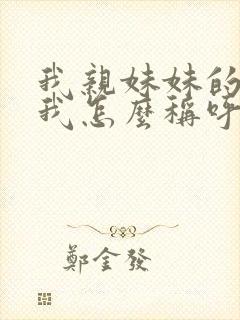 我親妹妹的
我怎麼稱呼
鄭金發